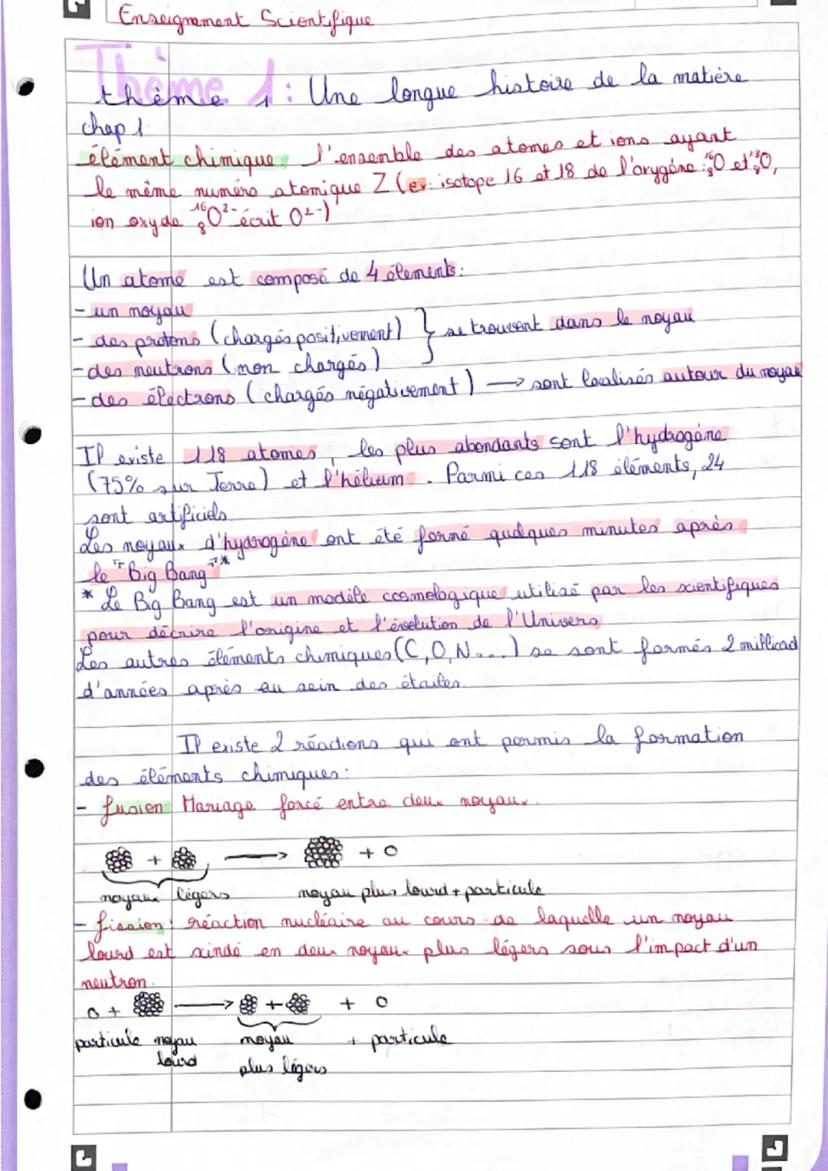 Enseignement Scientifique
Thème 1 : Une longue histoire de la matière
chap 1
élément chimique : l'ensemble des atomes et ions ayant
le même numéro atomique Z (ex: isotope 16 et 18 de l'oxygène : ¹⁶₈O et ¹⁸₈O,
ion oxyde ¹⁶₈O²⁻ écrit O²⁻)
Un atome est composé de 4 éléments :
- un noyau
- des protons (chargés positivement) } se trouvent dans le noyau
- des neutrons (non chargés)
- des électrons (chargés négativement) → sont localisés autour du noyau
Il existe 118 atomes, les plus abondants sont l'hydrogène
(75% sur Terre) et l'hélium. Parmi ces 118 éléments, 24
sont artificiels.
Les noyaux d'hydrogène ont été formé quelques minutes après
le "Big Bang"*
* Le Big Bang est un modèle cosmologique utilisé par les scientifiques
pour décrire l'origine et l'évolution de l'Univers
Les autres éléments chimiques (C, O, N...) se sont formés 2 milliard
d'années après au sein des étoiles.
Il existe 2 réactions qui ont permis la formation
des éléments chimiques :
- fusion : Mariage forcé entre deux noyaux.
+ → + o
noyaux légers noyau plus lourd + particule
- fission : réaction nucléaire au cours de laquelle un noyau
lourd est scindé en deux noyaux plus légers sous l'impact d'un
neutron.
o + → + + o
particule noyau noyau + particule
lourd plus légers